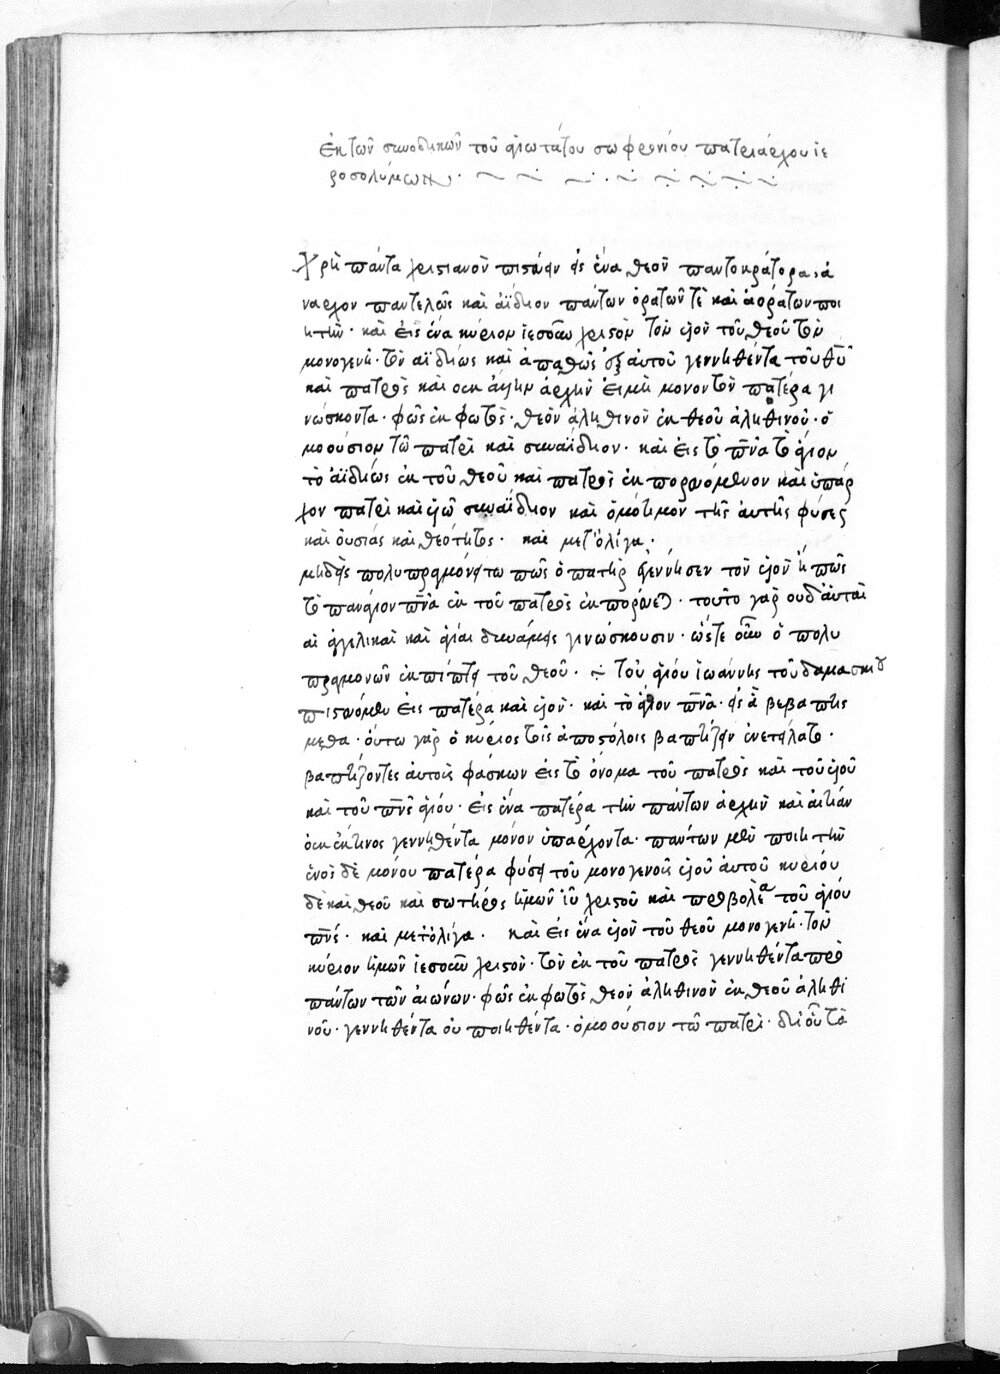 ἐκ τῶν συνοδικῶν τοῦ ἁγιωτάτου σωφρονίου πατριάρχου ἱε
ροσολύμων·
Χρὴ πάντα χριστιανὸν πιστεύειν εἰς ἕνα θεὸν παντοκράτορα, ἄ
ναρχον παντελῶς καὶ ἀΐδιον πάντων ὁρατῶν τὲ καὶ ἀοράτων ποι
ητὴν· καὶ εἰς ἕνα κύριον ἰησοῦν χριστὸν τὸν υἱὸν τοῦ θεοῦ τὸν
μονογενῆ· τὸν αϊδίως καὶ ἀπαθῶς ἐξ αὐτοῦ γεννηθέντα τοῦ θ̅υ̅
καὶ πατρὸς καὶ οὐκ ἄλλην ἀρχὴν εἰ μὴ μόνον τὸν πατέρα γι
νώσκοντα· φῶς ἐκ φωτὸς· θεὸν ἀληθινὸν ἐκ θεοῦ ἀληθινοῦ· ὁ
μοούσιον τῶ πατρὶ καὶ συναΐδιον· καὶ εἰς τὸ π̅ν̅α̅ τὸ ἅγιον
τὸ ἀϊδίως ἐκ τοῦ θεοῦ καὶ πατρὸς ἐκπορευόμενον καὶ ὑπάρ
χον πατρὶ καὶ υἱῶ συναΐδιον καὶ ὁμότιμον τῆς αὐτῆς φύσεως
καὶ οὐσίας καὶ θεότητος· καὶ μετ' ὀλίγα·
μηδεὶς πολυπραγμονείτω πῶς ὁ πατὴρ ἐγέννησεν τὸν υἱὸν ἢ πῶς
τὸ πανάγιον π̅ν̅α̅ ἐκ τοῦ πατρὸς ἐκπορεύεται· τοῦτο γὰρ οὐδ' αὐταὶ
αἱ ἀγγελικαὶ καὶ ἅγιαι δυνάμεις γινώσκουσιν· ὥστε οὖν ὁ πολυ
πραγμονῶν ἐκπίπτει τοῦ θεοῦ· τοῦ ἁγίου ἰωάννης τοῦ δαμασκηνοῦ
πιστεύομεν εἰς πατέρα καὶ υἱὸν· καὶ τὸ ἅγιον π̅ν̅α̅· εἰς ἃ βεβαπτίς
μεθα· οὕτω γὰρ ὁ κύριος τοῖς ἀποστόλοις βαπτίζειν ἐνετείλατο·
βαπτίζοντες αὐτοὺς φάσκων εἰς τὸ ὄνομα τοῦ πατρὸς καὶ τοῦ υἱοῦ
καὶ τοῦ π̅ν̅ς̅ ἁγίου· εἰς ἕνα πατέρα τὴν πάντων ἀρχὴν καὶ αἰτίαν
οὐκ ἔκ τινος γεννηθέντα μόνον ὑπάρχοντα· πάντων μὲν ποιητὴν
ἑνὸς δὲ μόνου πατέρα φύσει τοῦ μονογενοῦς υἱοῦ αὐτοῦ κυρίου
δὲ καὶ θεοῦ καὶ σωτῆρος ἡμῶν ἰ̅υ̅ χριστοῦ καὶ προβολέα τοῦ ἁγίου
π̅ν̅ς̅· καὶ μετ' ὀλίγα· καὶ εἰς ἕνα υἱὸν τοῦ θεοῦ μονογενῆ· τὸν
κύριον ἡμῶν ἰησοῦν χριστὸν· τὸν ἐκ τοῦ πατρὸς γεννηθέντα πρὸ
πάντων τῶν αἰώνων· φῶς ἐκ φωτὸς θεὸν ἀληθινὸν ἐκ θεοῦ ἀληθι
νοῦ· γεννηθέντα οὐ ποιηθέντα· ὁμοούσιον τῶ πατρὶ· δι' οὗ τὰ